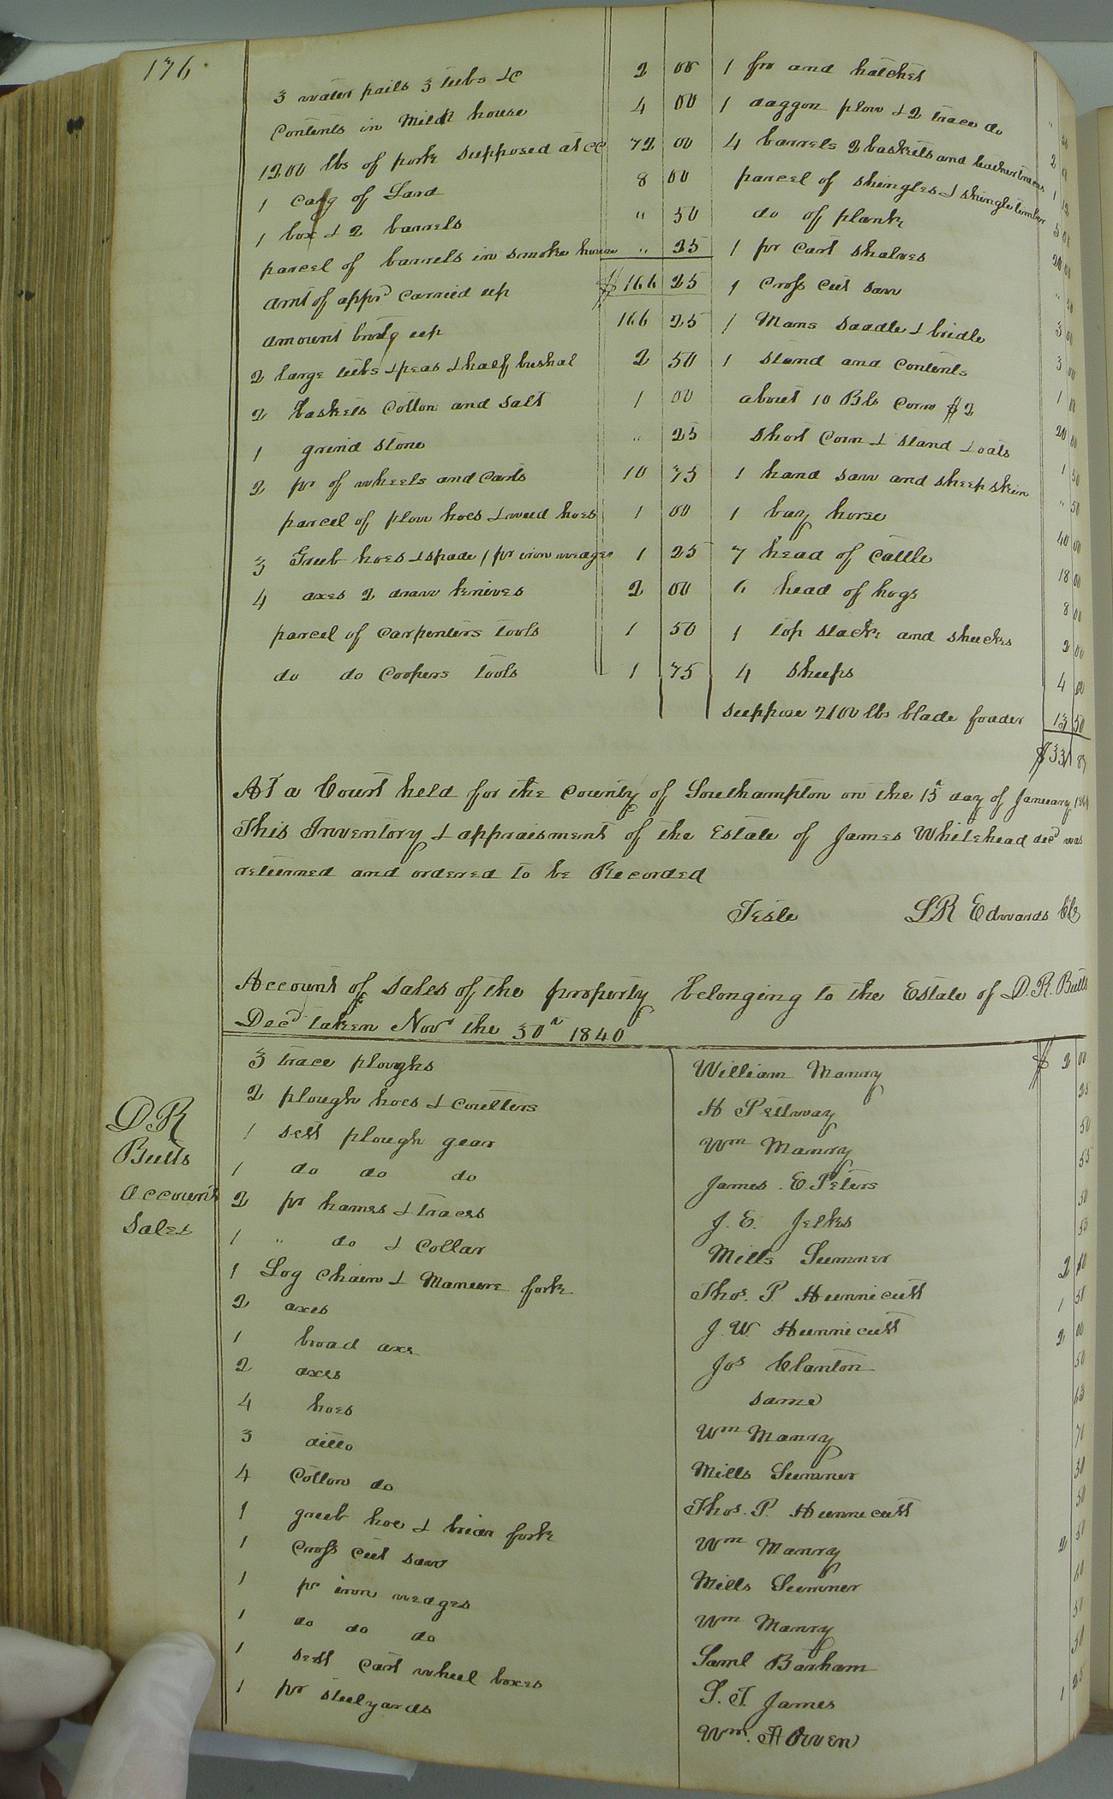 176
3 water pails 3 tubs &c 2 00
Contents in Milk house 4 00
1200 lbs of pork supposed at 72 00
1 of Lard 8 00
1 box & 2 barrels " 50
parcel of barrels in smoke house " 25
Amt of apprd carried up $166 25
amount brot up 166 25
2 large tubs & peas & half bushal 2 50
2 baskets Cotton and Salt 1 00
1 grind stone " 25
2 pr of wheels and Carts 10 75
parcel of plow hoes & weed hoes 1 00
3 Grub hoes & spade 1 pr iron wedges 1 25
4 axes 2 draw knives 2 00
parcel of Carpenters tools 1 50
do do Coopers tools 1 75
1 fro and hatchet
1 daggon plow & 2 trace do
4 barrels 2 baskets and leather traces
parcel of shingles & shingle timber
do of plank
1 pr Cart shalves
1 Cross Cut saw
1 Mans Saddle & bridle
1 stand and Contents
about 10 Bls Corn $2
Short Corn & stand & oats
1 hand saw and sheep skin
1 bay horse 40 00
7 head of Cattle 18 00
6 head of hogs 8 00
1 top stack and shucks 2 00
4 sheeps 4 00
suppose 2100 lbs blade fodder 13 50
$331
At a Court held for the County of Southampton on the 15th day of January
This Inventory & appraisment of the Estate of James Whitehead decd was
returned and ordered to be Recorded
Teste L R Edwards Clk
Account of Sales of the property belonging to the Estate of D. R. Butts
Decd taken Novr the 30th 1840
D R
Butts
Account
Sales
3 trace ploughs William Manry $2 00
2 plough hoes & Coulters H Pettway 25
1 sett plough gear Wm Manry 50
1 do do do James E. Peters 55
2 pr hames & traces J. E. Jelkes 50
1 " do & Collar Mills Sumner 55
1 Log Chain & Manure fork Thos. P Hunnicutt 2
2 axes J. W Hunnicutt 1
1 broad axe Jos Clanton 2 00
2 axes same 50
4 hoes Wm Manry
3 ditto Mills Sumner
4 Cotton do Thos. P. Hunnicutt
1 grub hoe & briar fork Wm Manry
1 Cross Cut saw Mills Sumner 2
1 pr iron wedges Wm Manry
1 do do do Saml Barham
1 sett Cart wheel boxes T. James
1 pr steelyards Wm. H Owen 1 25